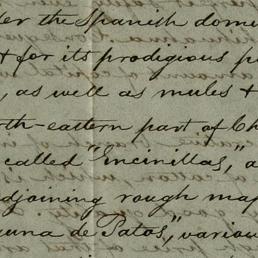 der the Spanish dome
& for its prodigious p
, as well as mules &
rth-eastern part of Ch
called "Encinillas," a
djoining rough map
guna de Patos," variou